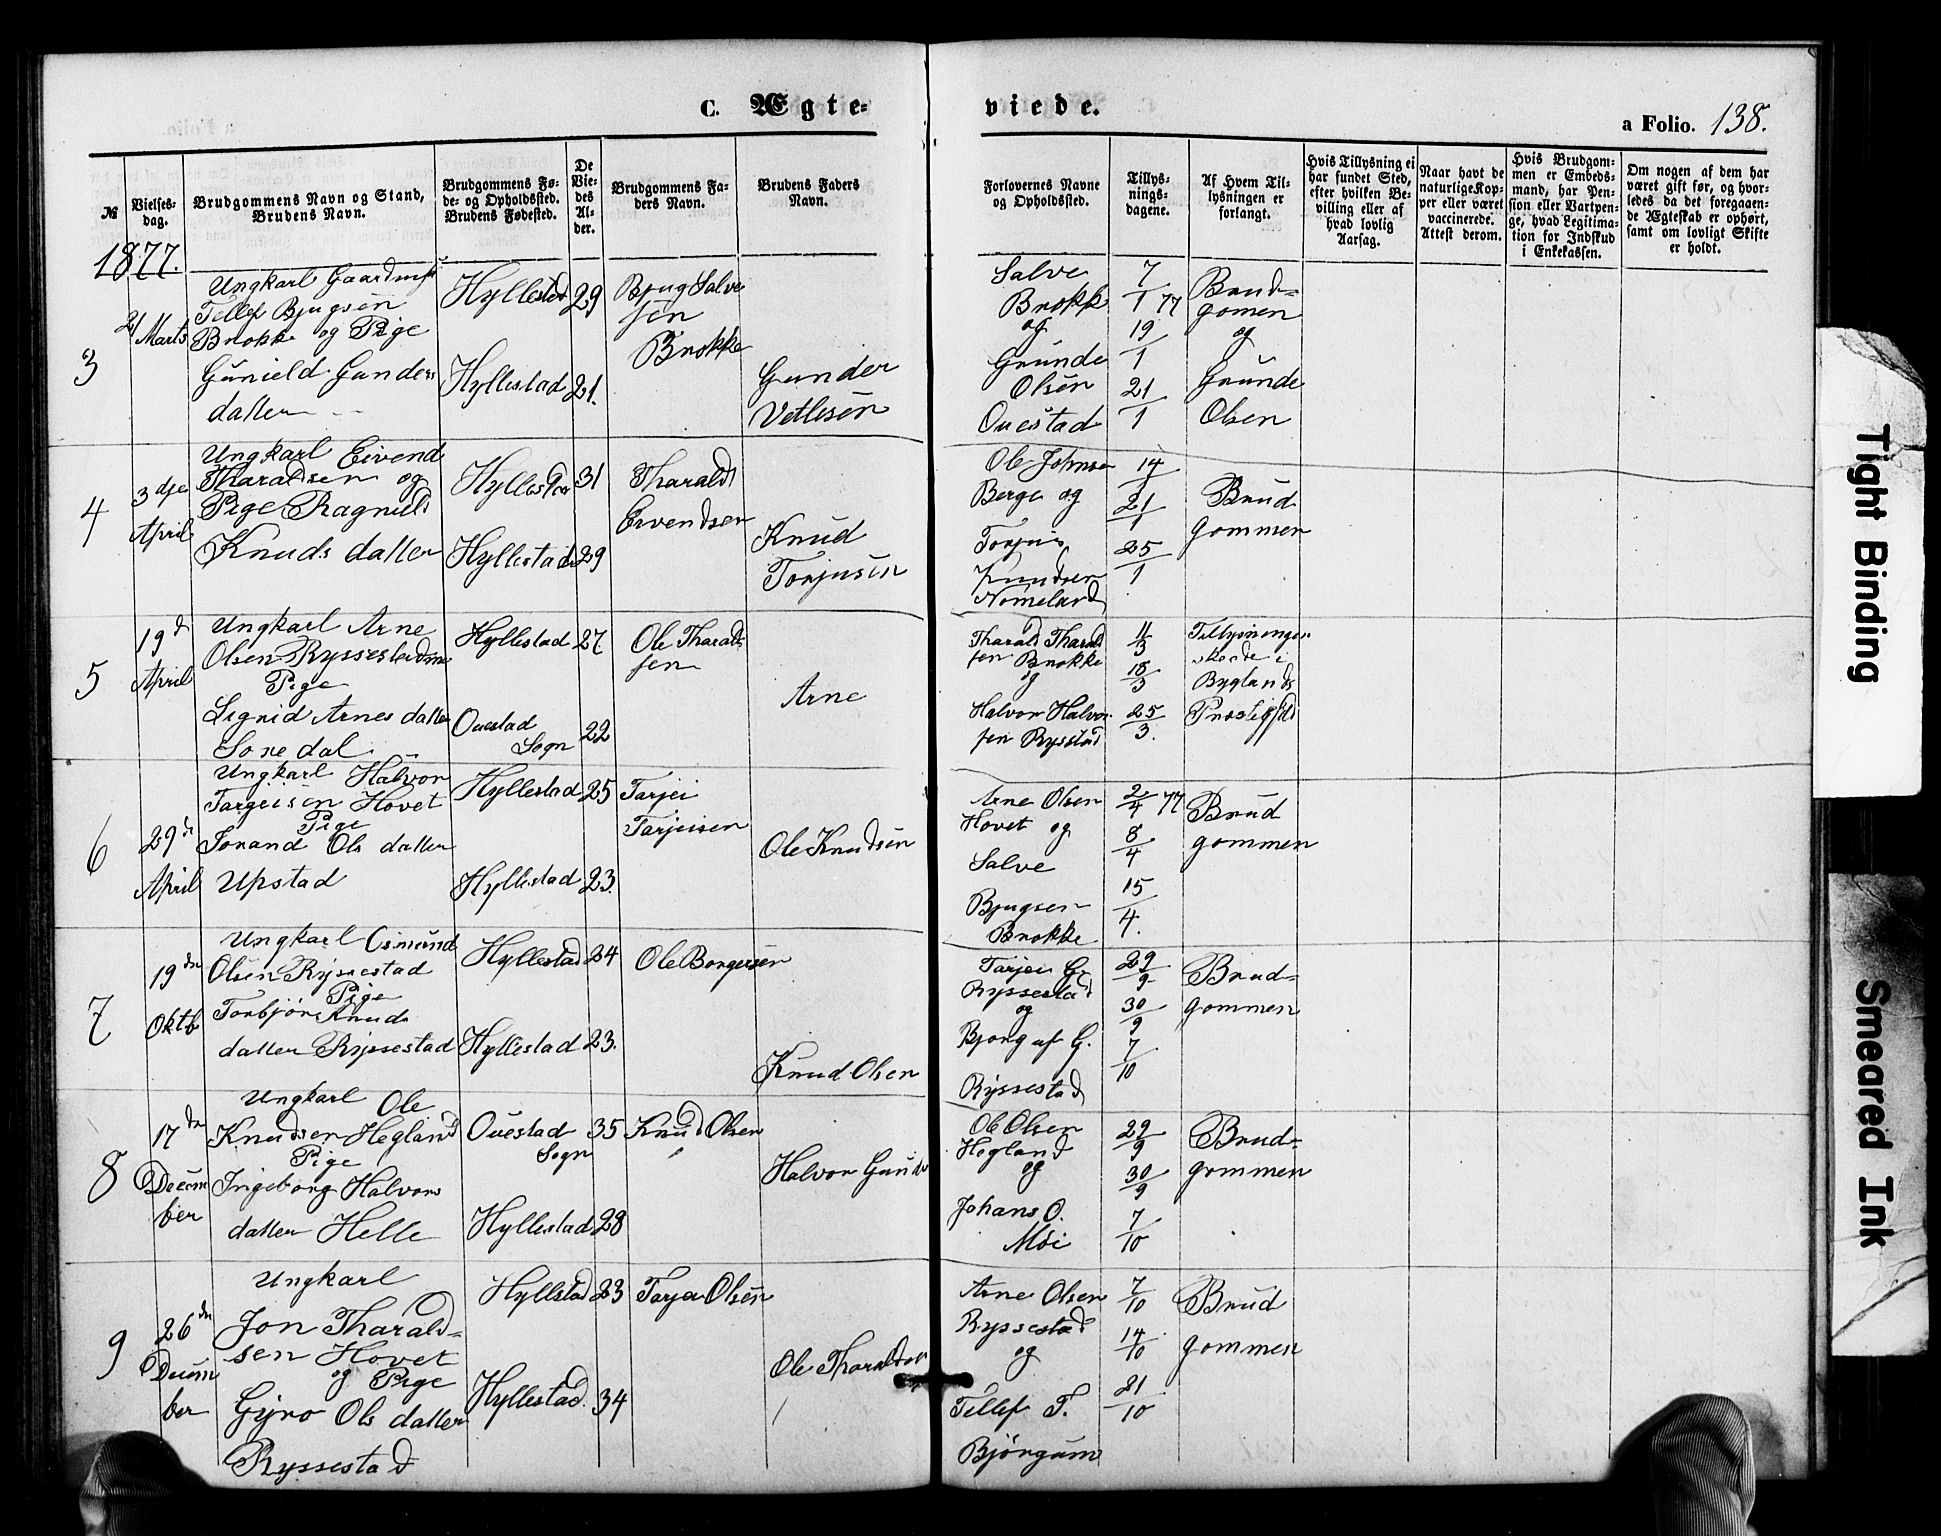 C. Ægte-
viede.
a Folio. 138.
№
Vielses-
dag.
Brudgommens Navn og Stand,
Brudens Navn.
Brudgommens Fø-
de- og Opholdssted.
Brudens Fødested.
De
Vie-
des
Al-
der.
Brudgommens Fa-
ders Navn.
Brudens Faders
Navn.
Forlovernes Navne
og Opholdssted.
Tillys-
nings-
dagene.
Af Hvem Til-
lysningen er
forlangt.
Hvis Tillysning ei
har fundet Sted,
efter hvilken Be-
villing eller af
hvad lovlig
Aarsag.
Naar havt de
naturlige Kop-
per eller været
vaccinerede.
Attest derom.
Hvis Brudgom-
men er Embeds-
mand, har Pen-
sion eller Vartpen-
ge, hvad Legitima-
tion for Indskud
i Enkekassen.
Om nogen af dem har
været gift før, og hvor-
ledes da det foregaaen-
de Ægteskab er ophørt,
samt om lovligt Skifte
er holdt.
1877.
3
21
Marts
Ungkarl
Tellef Bjugsen
Brokke og Pige
Gunield Gunders
datter
Hyllestad 29
Hyllestad 21.
Bjug Salve
sen
Brokke
Gunder
Vetlesen
Salve
Brokke
og
Grunde
Olsen
Ouestad
7/1 77
19/1
21/1
Brud=
gomen
og
Grunde
Olsen
4
3dje
April
Ungkarl Eivend
Tharaldsen og
Pige Ragnild
Knuds datter
Hyllestad 31
Hyllestad 29
Tharald
Eivendsen
Knud
Torjusen
Ole Johnsen
Berge og
Torjus
Knudsen
Nomeland
14/1
21/1
25/1
Brud
gommen
5
19d
April
Ungkarl Arne
Olsen Ryssestad
Pige
Sigrid Arnes datter
Hyllestad 27
Ouestad
Sogn 22
Ole Tharald
sen
Arne
Tharald Tharald
sen Brokke
og
Halvor Halvor
sen Rysstad
11/3
18/3
25/3.
Tillysningen
skede i
Byglands
Præstegjeld
6
29de
April
Ungkarl Halvor
Targeisen Hovet
Pige
Torand Ols datter
Upstad
Hyllestad 25
Hyllestad 23.
Tarjei
Tarjeisen
Ole Knudsen
Arne Olsen
Hovet og
Salve
Bjugsen
Brokke
2/4 77
8/4
15/4.
Brud
gommen
7
19dn
Oktb
Ungkarl Osmund
Olsen Ryssestad
Pige
Torbjør Knuds
datter Ryssestad
Hyllestad 24
Hyllestad 23.
Ole Borgersen
Knud Olsen
Tarjei G.
Ryssestad
og
Bjorguf G.
Ryssestad
29/9
30/9
7/10
Brud=
gommen
8
17dn
Decem
ber
Ungkarl Ole
Knudsen Hegland
Pige
Ingeborg Halvors
datter Helle
Ouestad
Sogn 35
Hyllestad 28
Knud Olsen
Halvor Gund
Ole Olsen
Hegland
og
Johans O.
Moi
29/9
30/9
7/10
Brud=
gommen
9
26dn
Decem
ber
Ungkarl
Jon Tharald=
sen Hovet
og Pige
Gyro Ols datter
Ryssestad
Hyllestad 23
Hyllestad. 34
Tarjei Olsen
Ole Tharaldsen
Arne Olsen
Ryssestad
og
Tellef T.
Bjørgum
7/10
14/10
21/10
Brud
gommen
Tight Binding
Smeared Ink